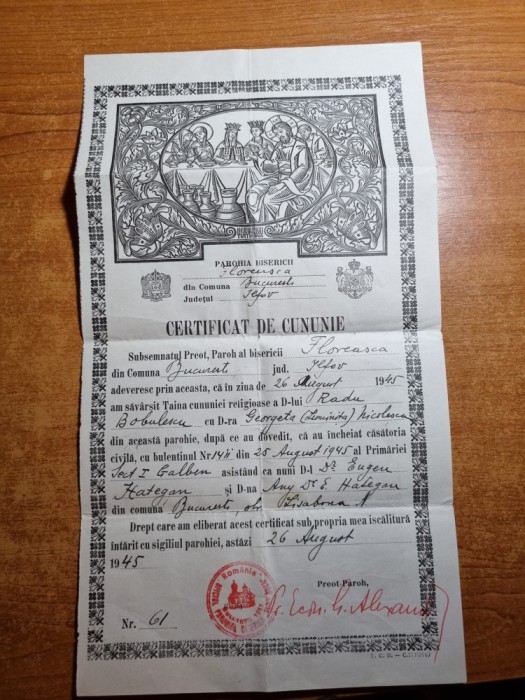 PAROHIA BISERICII
Floreasca
din Comuna Bucuresti
Județul Ilfov
CERTIFICAT DE CUNUNIE
Subsemnatul Preot, Paroh al bisericii Floreasca
din Comuna Bucuresti jud. Ilfov
adeveresc prin aceasta, că în ziua de 26 August 1945
am săvârșit Taina cununiei religioase a D-lui Radu
Bobulescu cu D-ra Georgeta (Luminita) Nicolescu
din această parohie, după ce au dovedit, că au încheiat căsătoria
civilă, cu buletinul Nr. din 25 August 1945 al Primăriei
Sect I Galben asistând ca nuni D-l Dr Eugen
Hategan și D-na Any Dr E. Hategan
din comuna Bucuresti, str. Lisabona
Drept care am eliberat acest certificat sub propria mea iscălitură
întărit cu sigiliul parohiei, astăzi 26 August
1945
România
Preot-Paroh,
Nr. 61